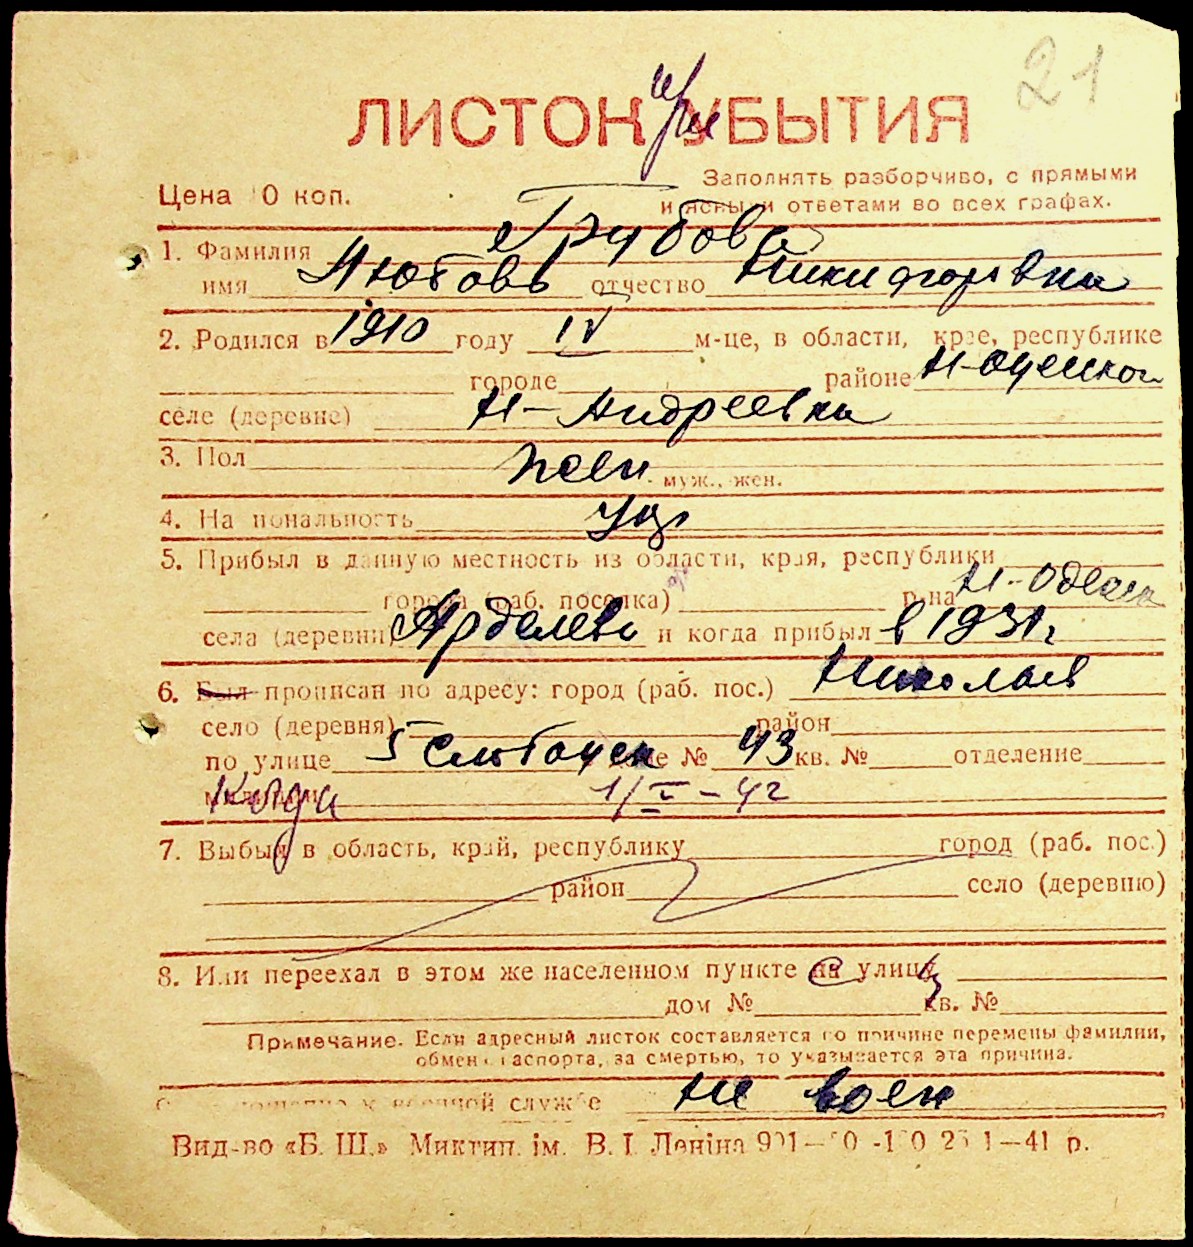 21
ЛИСТОК при УБЫТИЯ
Цена 0 коп.
Заполнять разборчиво, с прямыми
и ясными ответами во всех графах.
1. Фамилия Грубова
имя Любовь отчество Никифоровна
2. Родился в 1910 году IV м-це, в области, крае, республике
городе районе Н-Одесском
селе (деревне) Н-Андреевка
3. Пол жен муж., жен.
4. Национальность укр
5. Прибыл в данную местность из области, края, республики
города (раб. поселка) р-на Н-Одесск
села (деревни) и когда прибыл в 1931 г
6. Был прописан по адресу: город (раб. пос.) Николаев
село (деревня) район
по улице 5 Слободск № 43 кв. № отделение
Когда 1/V-42
7. Выбыл в область, край, республику город (раб. пос.)
район село (деревню)
8. Или переехал в этом же населенном пункте на улицу
дом № кв. №
Примечание. Если адресный листок составляется по причине перемены фамилии,
обмена паспорта, за смертью, то указывается эта причина.
к военной службе не воен
Вид-во «Б. Ш.» Миктип. ім. В. І. Леніна 1—41 р.